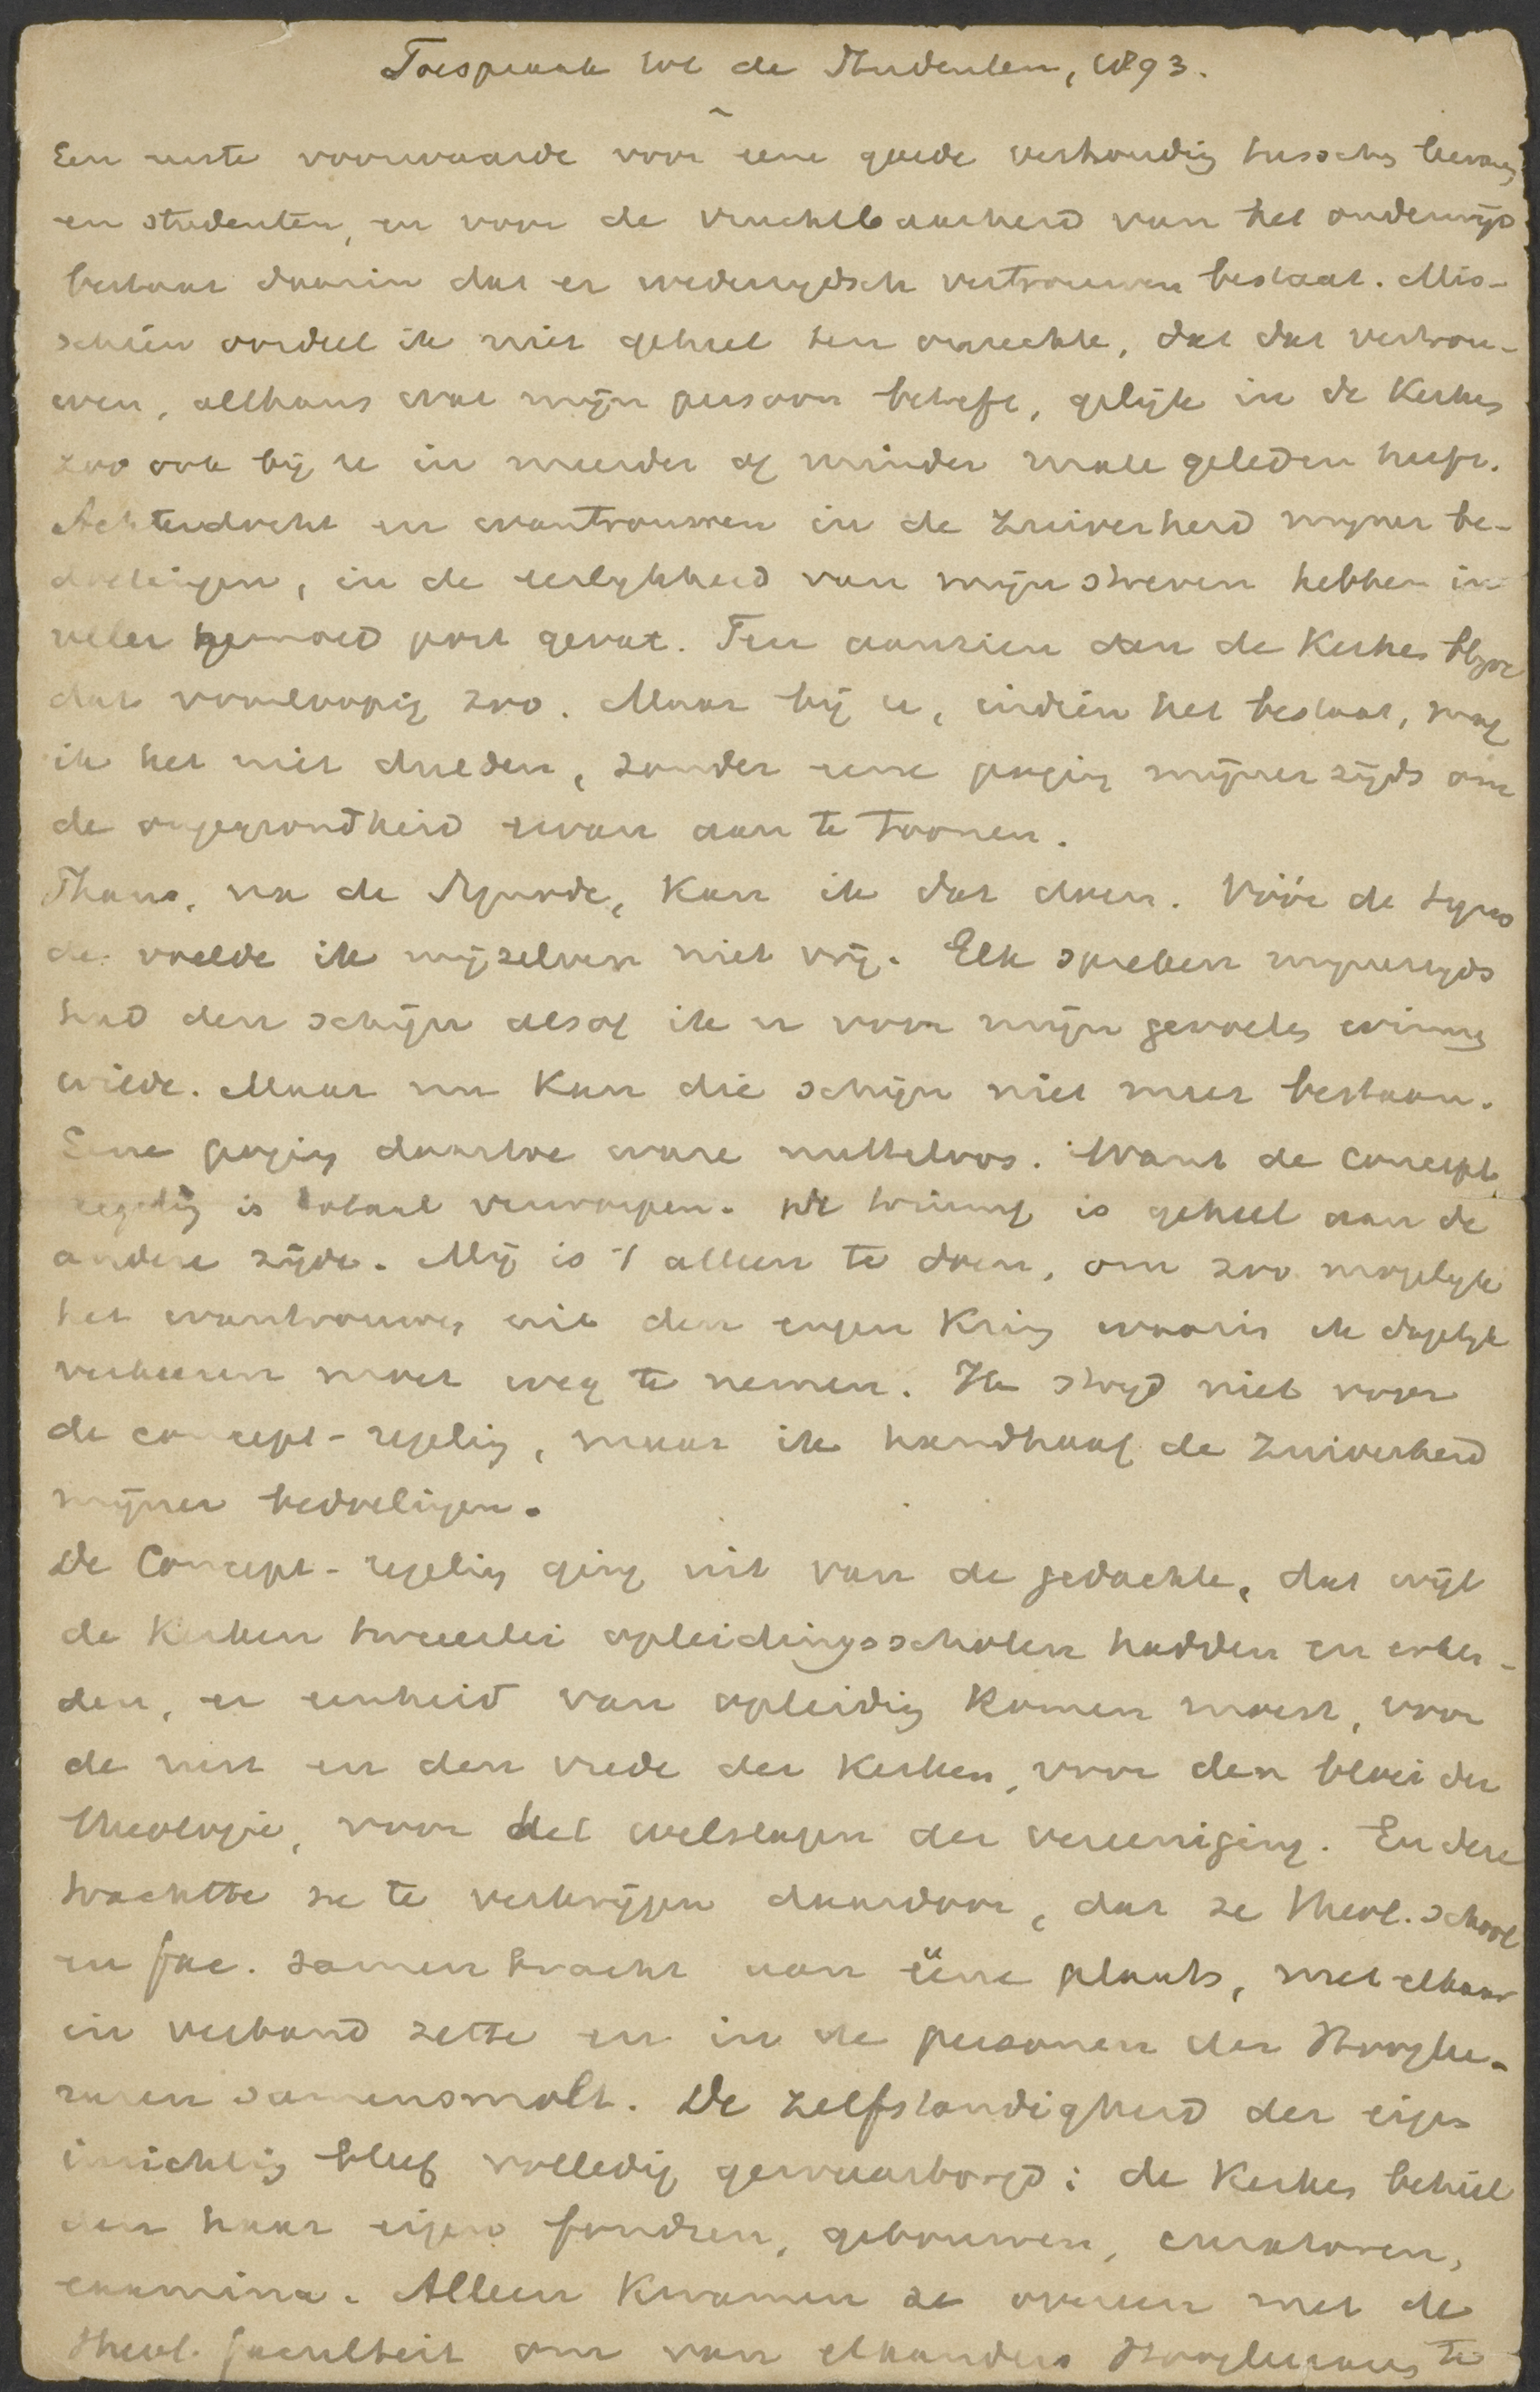 Toespraak tot de Studenten, 1893.
Een eerste voorwaarde voor eene goede verhoudig tusschen leeraars
en studenten, en voor de vruchtbaarheid van het onderwijs
bestaat daarin dat er wederzijdsch vertrouwen bestaat. Mis-
schien oordeel ik niet geheel ten onrechte, dat dat vertrou-
wen, althans wat mijn persoon betreft, gelijk in de Kerken
zoo ook bij u in meerder of minder mate geleden heeft.
Achterdocht en wantrouwen in de zuiverheid mijner be-
doelingen, in de eerlijkheid van mijn streven hebben in
veler gemoed post gevat. Ten aanzien van de Kerken blijve
dat voorloopig zoo. Maar bij u, indien het bestaat, mag
ik het niet dulden, zonder eene poging mijnerzijds om
de ongegrondheid ervan aan te toonen.
Thans, na de Synode, kan ik dat doen. Vóór de Syno
de voelde ik mijzelven niet vrij. Elk spreken mijnerzijds
had den schijn alsof ik u voor mijn gevoelen winnen
wilde. Maar nu kan die schijn niet meer bestaan.
Eene poging daartoe ware nutteloos. Want de concept
regeling is totaal verworpen. De triumf is geheel aan de
andere zijde. Mij is 't alleen te doen, om zoo mogelijk
het wantrouwen uit den engen kring waarin ik dagelijks
verkeeren moet weg te nemen. Ik strijd niet voor
de concept-regeling, maar ik handhaaf de zuiverheid
mijner bedoelingen.
De Concept-regeling ging uit van de gedachte, dat wijl
de Kerken tweeërlei opleidingsscholen hadden en erken-
den, er eenheid van opleiding komen moest, voor
de rust en den vrede der Kerken, voor den bloei der
theologie, voor het welslagen der vereeniging. En deze
trachtte ze te verkrijgen daardoor, dat ze theol. school
en fac. samen bracht aan ééne plaats, met elkaar
in verband zette en in de personen der Hooglee-
raren samensmolt. De zelfstandigheid der eigen
inrichting bleef volledig gewaarborgd: de Kerken behiel
den haar eigen fondsen, gebouwen, curatoren,
examina. Alleen kwamen ze overeen met de
theol. faculteit om van elkanders Hoogleeraars te